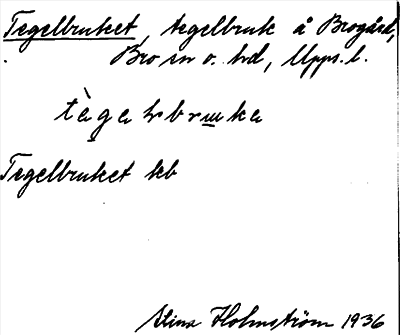 Tegelbruket, tegelbruk å Brogård,
Bro sn o. hd, Upps. l.
tàgalbruka
Tegelbruket kb
Stina Holmström 1936